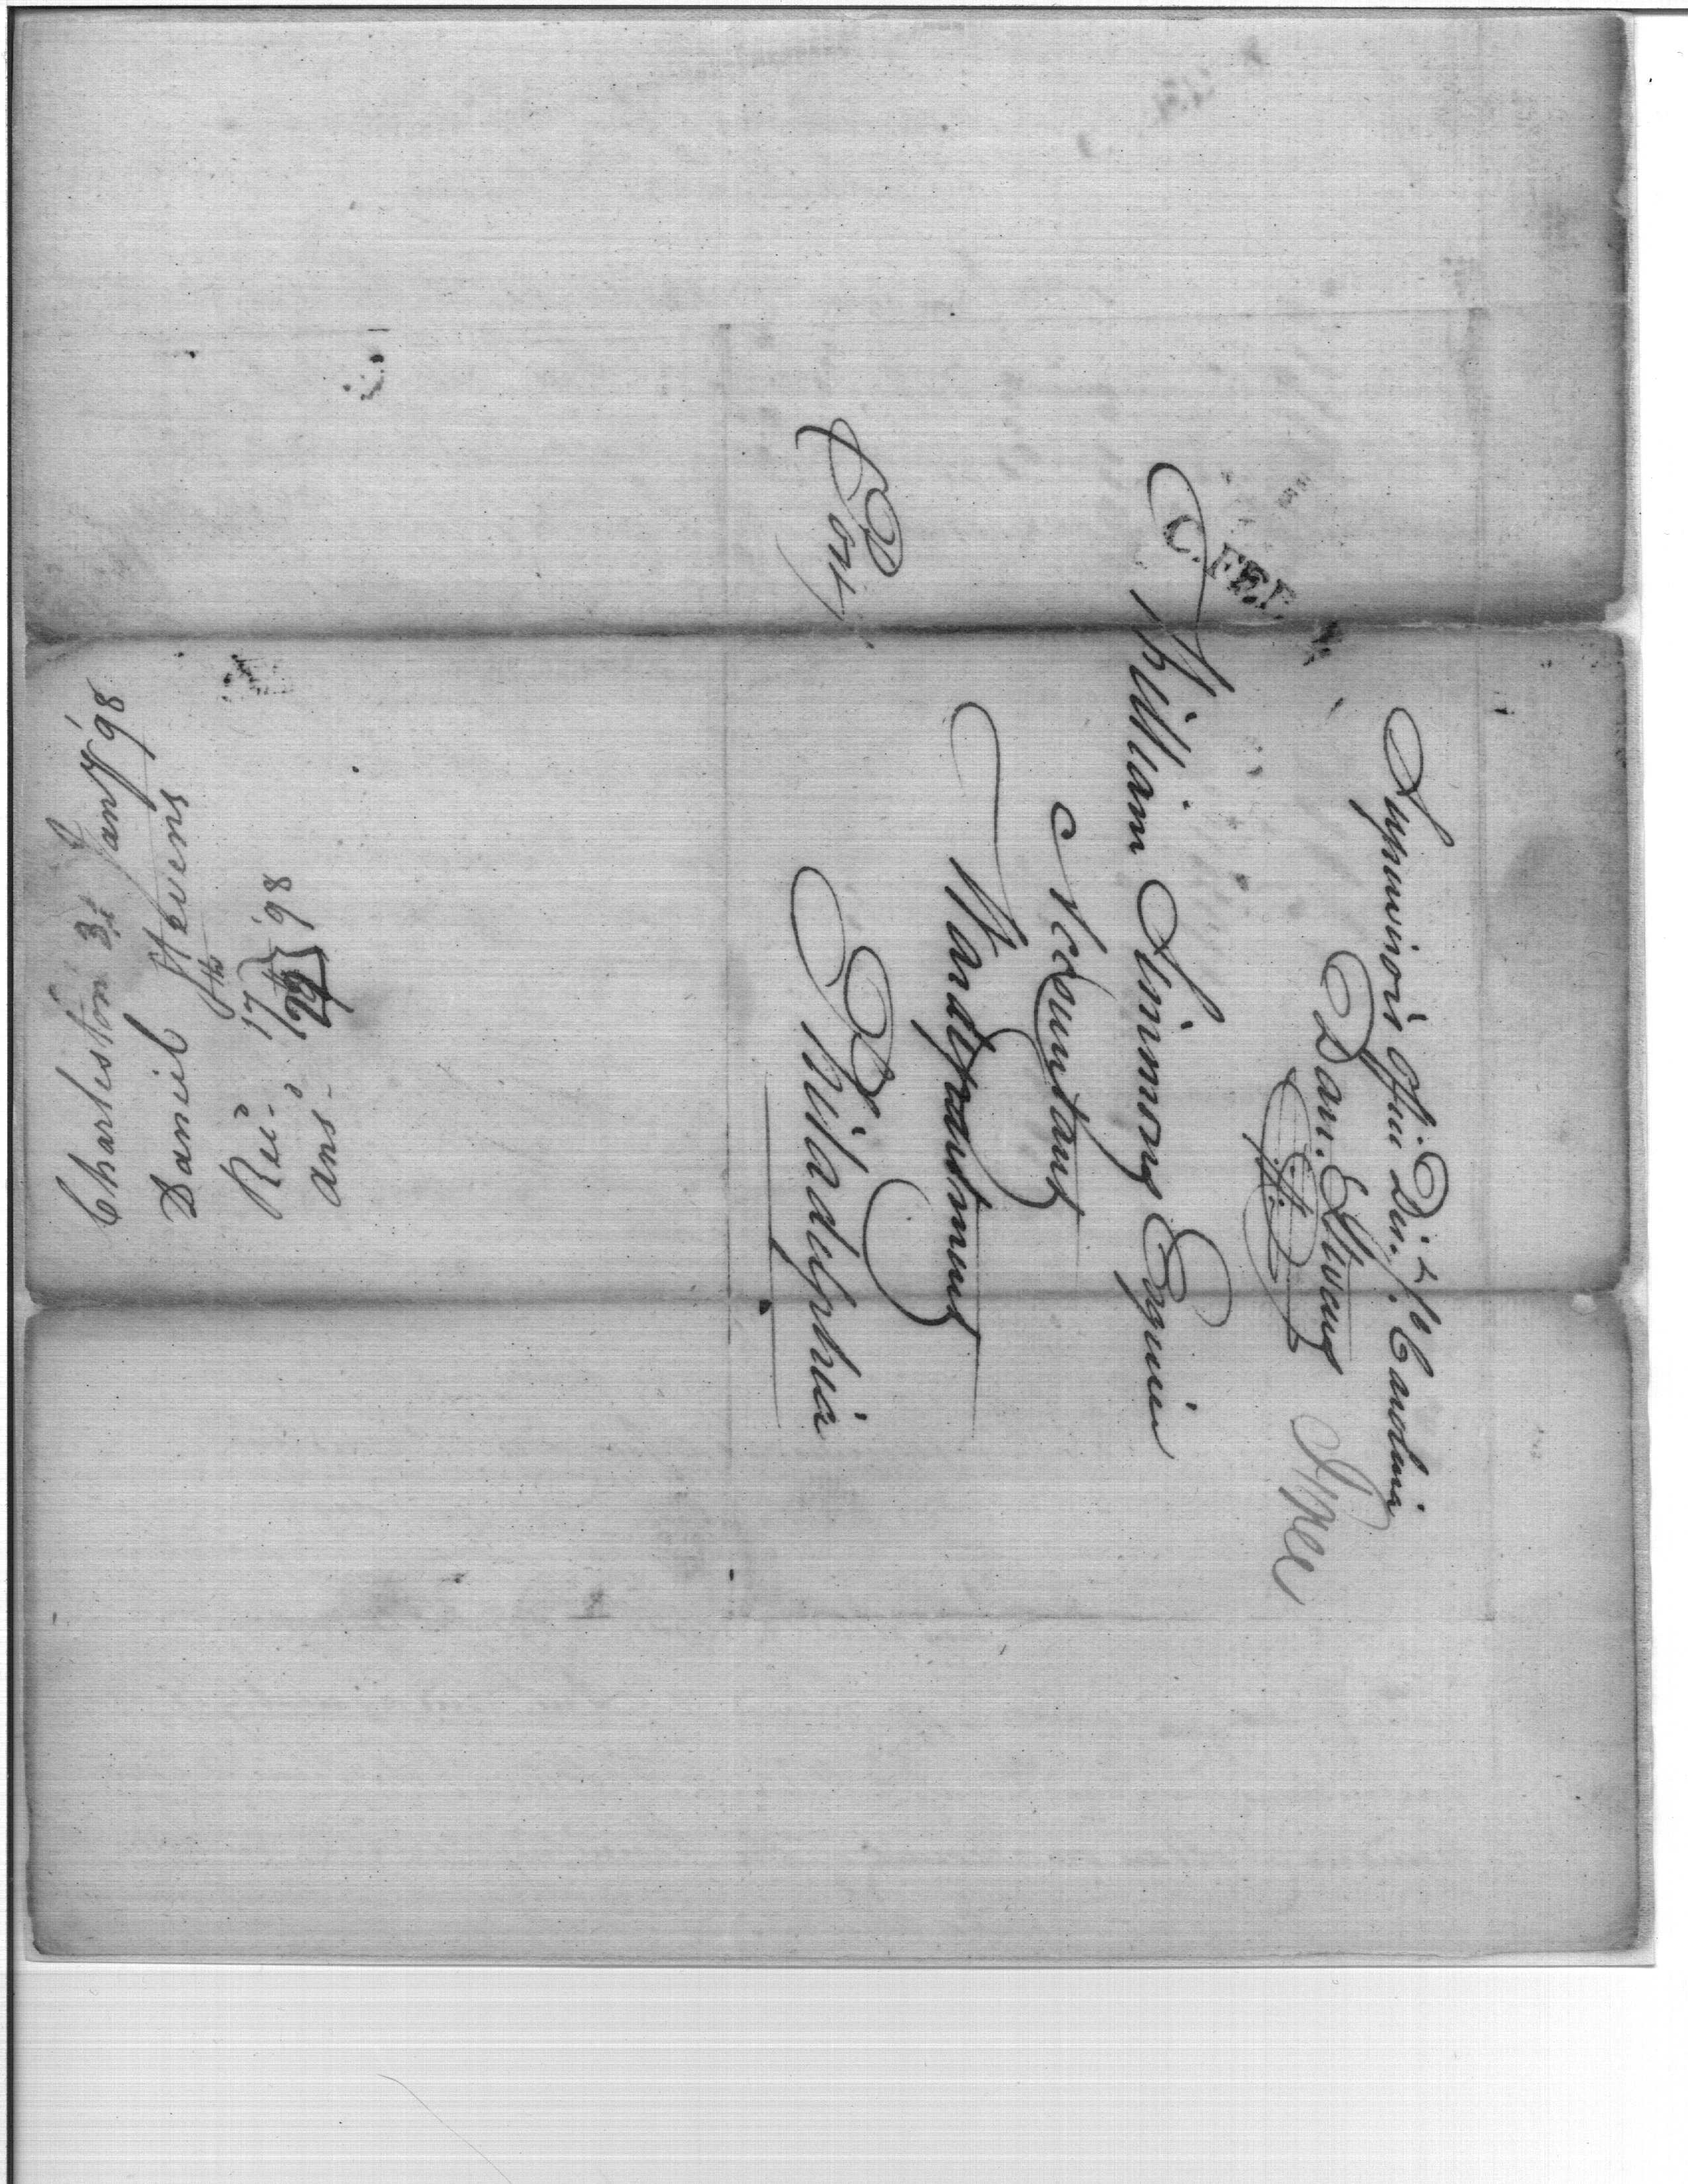 Supervisor's Office Dist. So. Carolina
Dan. Stevens
Free
C. FE
William Simmons Esquire
Accountant
War department
Philadelphia
Post
Charleston 3d Jany '98
Daniel Stevens
Rec. 17th } '98
ans. 29